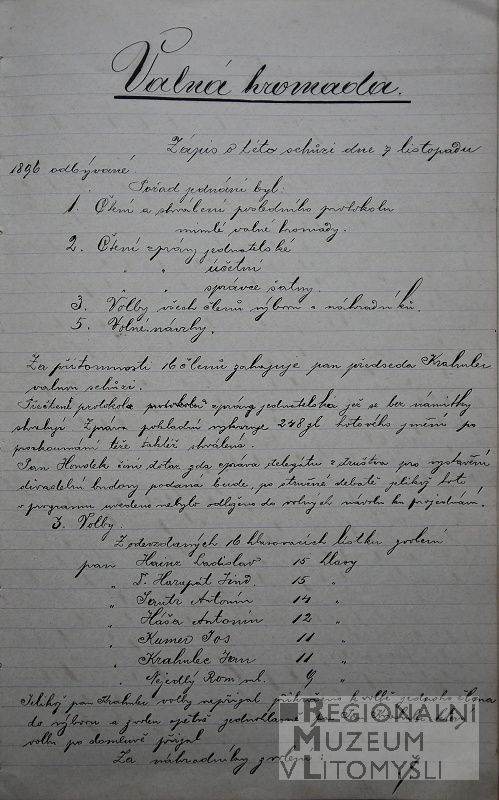 Valná hromada.
Zápis o této schůzi dne 7 listopadu
1896 odbývané.
Pořad jednání byl:
1. Čtení a schválení posledního protokolu
minulé valné hromady.
2. Čtení zprávy jednatelské
" " účetní
" " správce šatny.
3. Volby všech členů výboru a náhradníků.
5. Volné návrhy.
Za přítomnosti 16 členů zahajuje pan předseda Krahulec
valnou schůzi.
protokolu zprávy jednatelská jež se bez námitky
schvalují Zpráva pokladní vykazuje 248 zl hotového jmění po
prozkoumání též taktéž schválena.
Pan činí dotaz zda zpráva delegátů z družstva pro vystavění
divadelní budovy podána bude, po stručné debatě jelikož toto
v programu uvedeno nebylo odloženo do volných návrhů ku projednání.
3. Volby.
Z odevzdaných 16 hlasovacích lístků zvoleni
pan Hainz Ladislav 15 hlasy
" 15 "
" Antonín 14 "
" Háša Antonín 12 "
" Kumer Jos 11 "
" Krahulec Jan 11 "
" Nejedlý Rom ml. 9 "
Jelikož pan Krahulec volby nepřijal k volbě jednoho člena
do výboru a zvolen opětně jednohlasně pan
volbu po domluvě přijal.
Za náhradníky zvoleni:
REGIONÁLNÍ
MUZEUM
V LITOMYŠLI